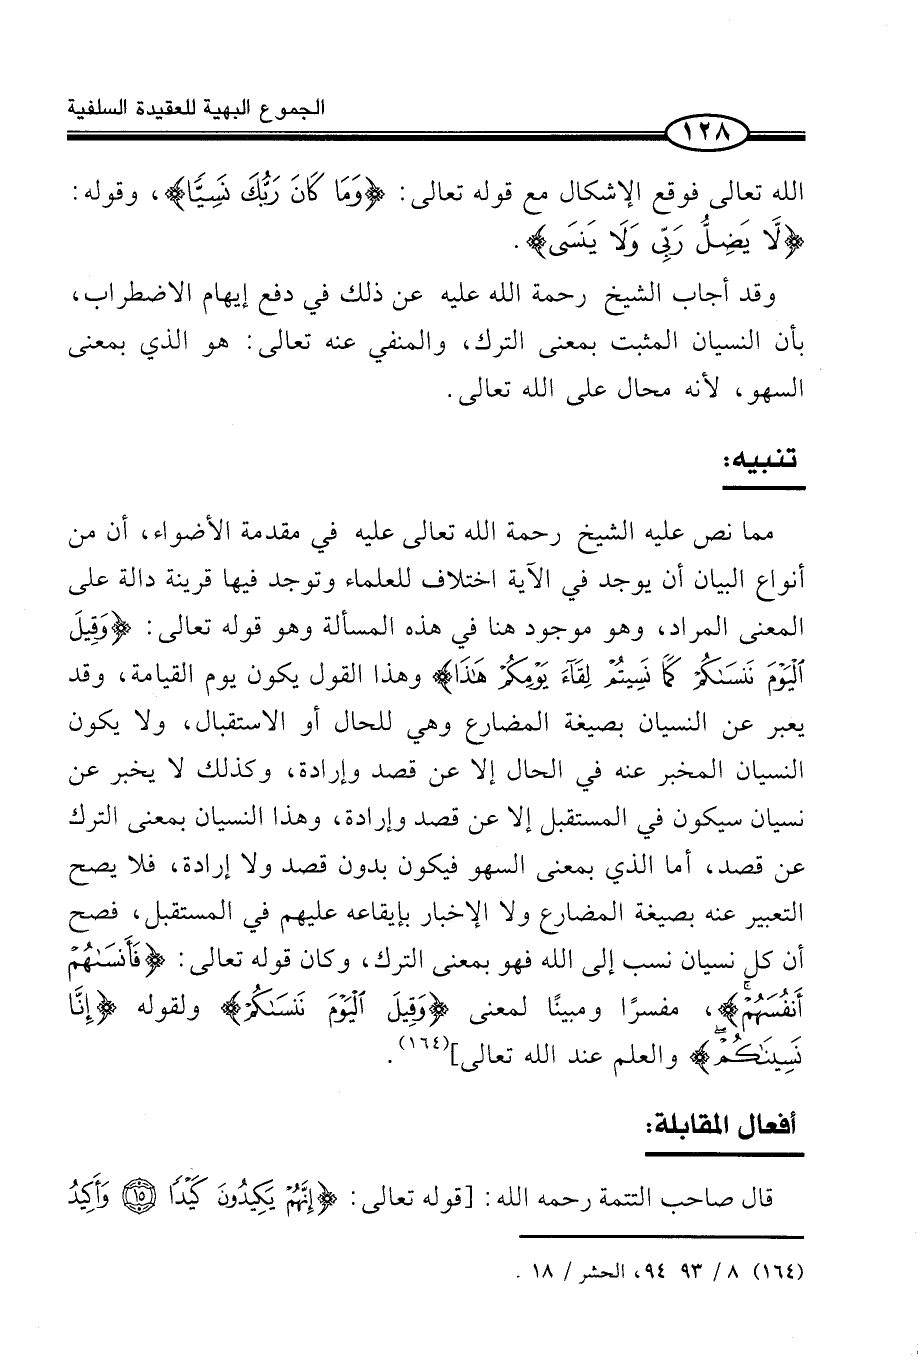 الجموع البهية للعقيدة السلفية
١٢٨
الله تعالى فوقع الإشكال مع قوله تعالى: ﴿وَمَا كَانَ رَبُّكَ نَسِيًّا﴾، وقوله:
﴿لَّا يَضِلُّ رَبِّى وَلَا يَنسَى﴾.
وقد أجاب الشيخ رحمة الله عليه عن ذلك في دفع إيهام الاضطراب،
بأن النسيان المثبت بمعنى الترك، والمنفي عنه تعالى: هو الذي بمعنى
السهو، لأنه محال على الله تعالى.
تنبيه:
مما نص عليه الشيخ رحمة الله تعالى عليه في مقدمة الأضواء، أن من
أنواع البيان أن يوجد في الآية اختلاف للعلماء وتوجد فيها قرينة دالة على
المعنى المراد، وهو موجود هنا في هذه المسألة وهو قوله تعالى: ﴿وَقِيلَ
ٱلْيَوْمَ نَنسَىٰكُمْ كَمَا نَسِيتُمْ لِقَآءَ يَوْمِكُمْ هَٰذَا﴾ وهذا القول يكون يوم القيامة، وقد
يعبر عن النسيان بصيغة المضارع وهي للحال أو الاستقبال، ولا يكون
النسيان المخبر عنه في الحال إلا عن قصد وإرادة، وكذلك لا يخبر عن
نسيان سيكون في المستقبل إلا عن قصد وإرادة، وهذا النسيان بمعنى الترك
عن قصد، أما الذي بمعنى السهو فيكون بدون قصد ولا إرادة، فلا يصح
التعبير عنه بصيغة المضارع ولا الإخبار بإيقاعه عليهم في المستقبل، فصح
أن كل نسيان نسب إلى الله فهو بمعنى الترك، وكان قوله تعالى: ﴿فَأَنسَىٰهُمْ
أَنفُسَهُمْ﴾، مفسرًا ومبينًا لمعنى ﴿وَقِيلَ ٱلْيَوْمَ نَنسَىٰكُمْ﴾ ولقوله ﴿إِنَّا
نَسِينَٰكُمْ﴾ والعلم عند الله تعالى](١٦٤).
أفعال المقابلة:
قال صاحب التتمة رحمه الله: [قوله تعالى: ﴿إِنَّهُمْ يَكِيدُونَ كَيْدًا ۝١٥ وَأَكِيدُ
(١٦٤) ٨ / ٩٣ ٩٤، الحشر / ١٨ .